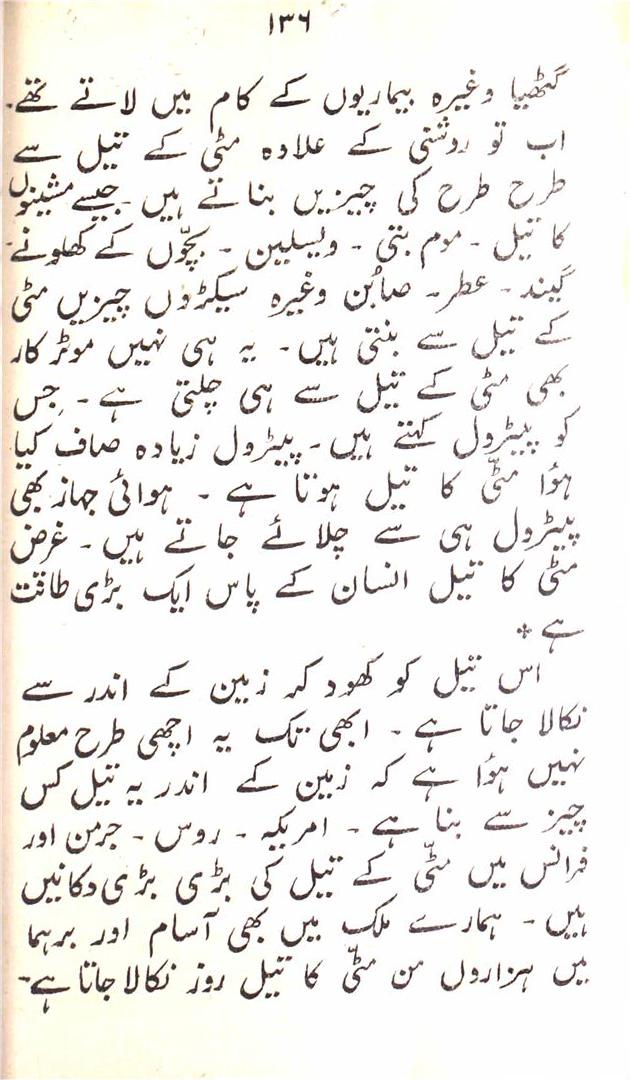 ۱۳۶
گٹھیا وغیرہ بیماریوں کے کام میں لاتے تھے۔
اب تو روشنی کے علاوہ مٹی کے تیل سے
طرح طرح کی چیزیں بناتے ہیں۔ جیسے مشینوں
کا تیل ۔ موم بتی ۔ ویسلین ۔ بچّوں کے کھلونے۔
گیند ۔ عطر۔ صابُن وغیرہ سیکڑوں چیزیں مٹی
کے تیل سے بنتی ہیں۔ یہ ہی نہیں موٹر کار
بھی مٹی کے تیل سے ہی چلتی ہے ۔ جِس
کو پیٹرول کہتے ہیں۔ پیٹرول زیادہ صاف کیا
ہؤا مٹّی کا تیل ہوتا ہے ۔ ہوائی جہاز بھی
پیٹرول ہی سے چلائے جاتے ہیں ۔ غرض
مٹی کا تیل انسان کے پاس ایک بڑی طاقت
ہے ٭
اس تیل کو کھود کر زمین کے اندر سے
نکالا جاتا ہے ۔ ابھی تک یہ اچھی طرح معلوم
نہیں ہؤا ہے کہ زمین کے اندر یہ تیل کس
چیز سے بنا ہے ۔ امریکہ ۔ روس ۔ جرمن اور
فرانس میں مٹّی کے تیل کی بڑی بڑی دکانیں
ہیں ۔ ہمارے ملک میں بھی آسام اور برہما
میں ہزاروں من مٹّی کا تیل روز نکالا جاتا ہے۔